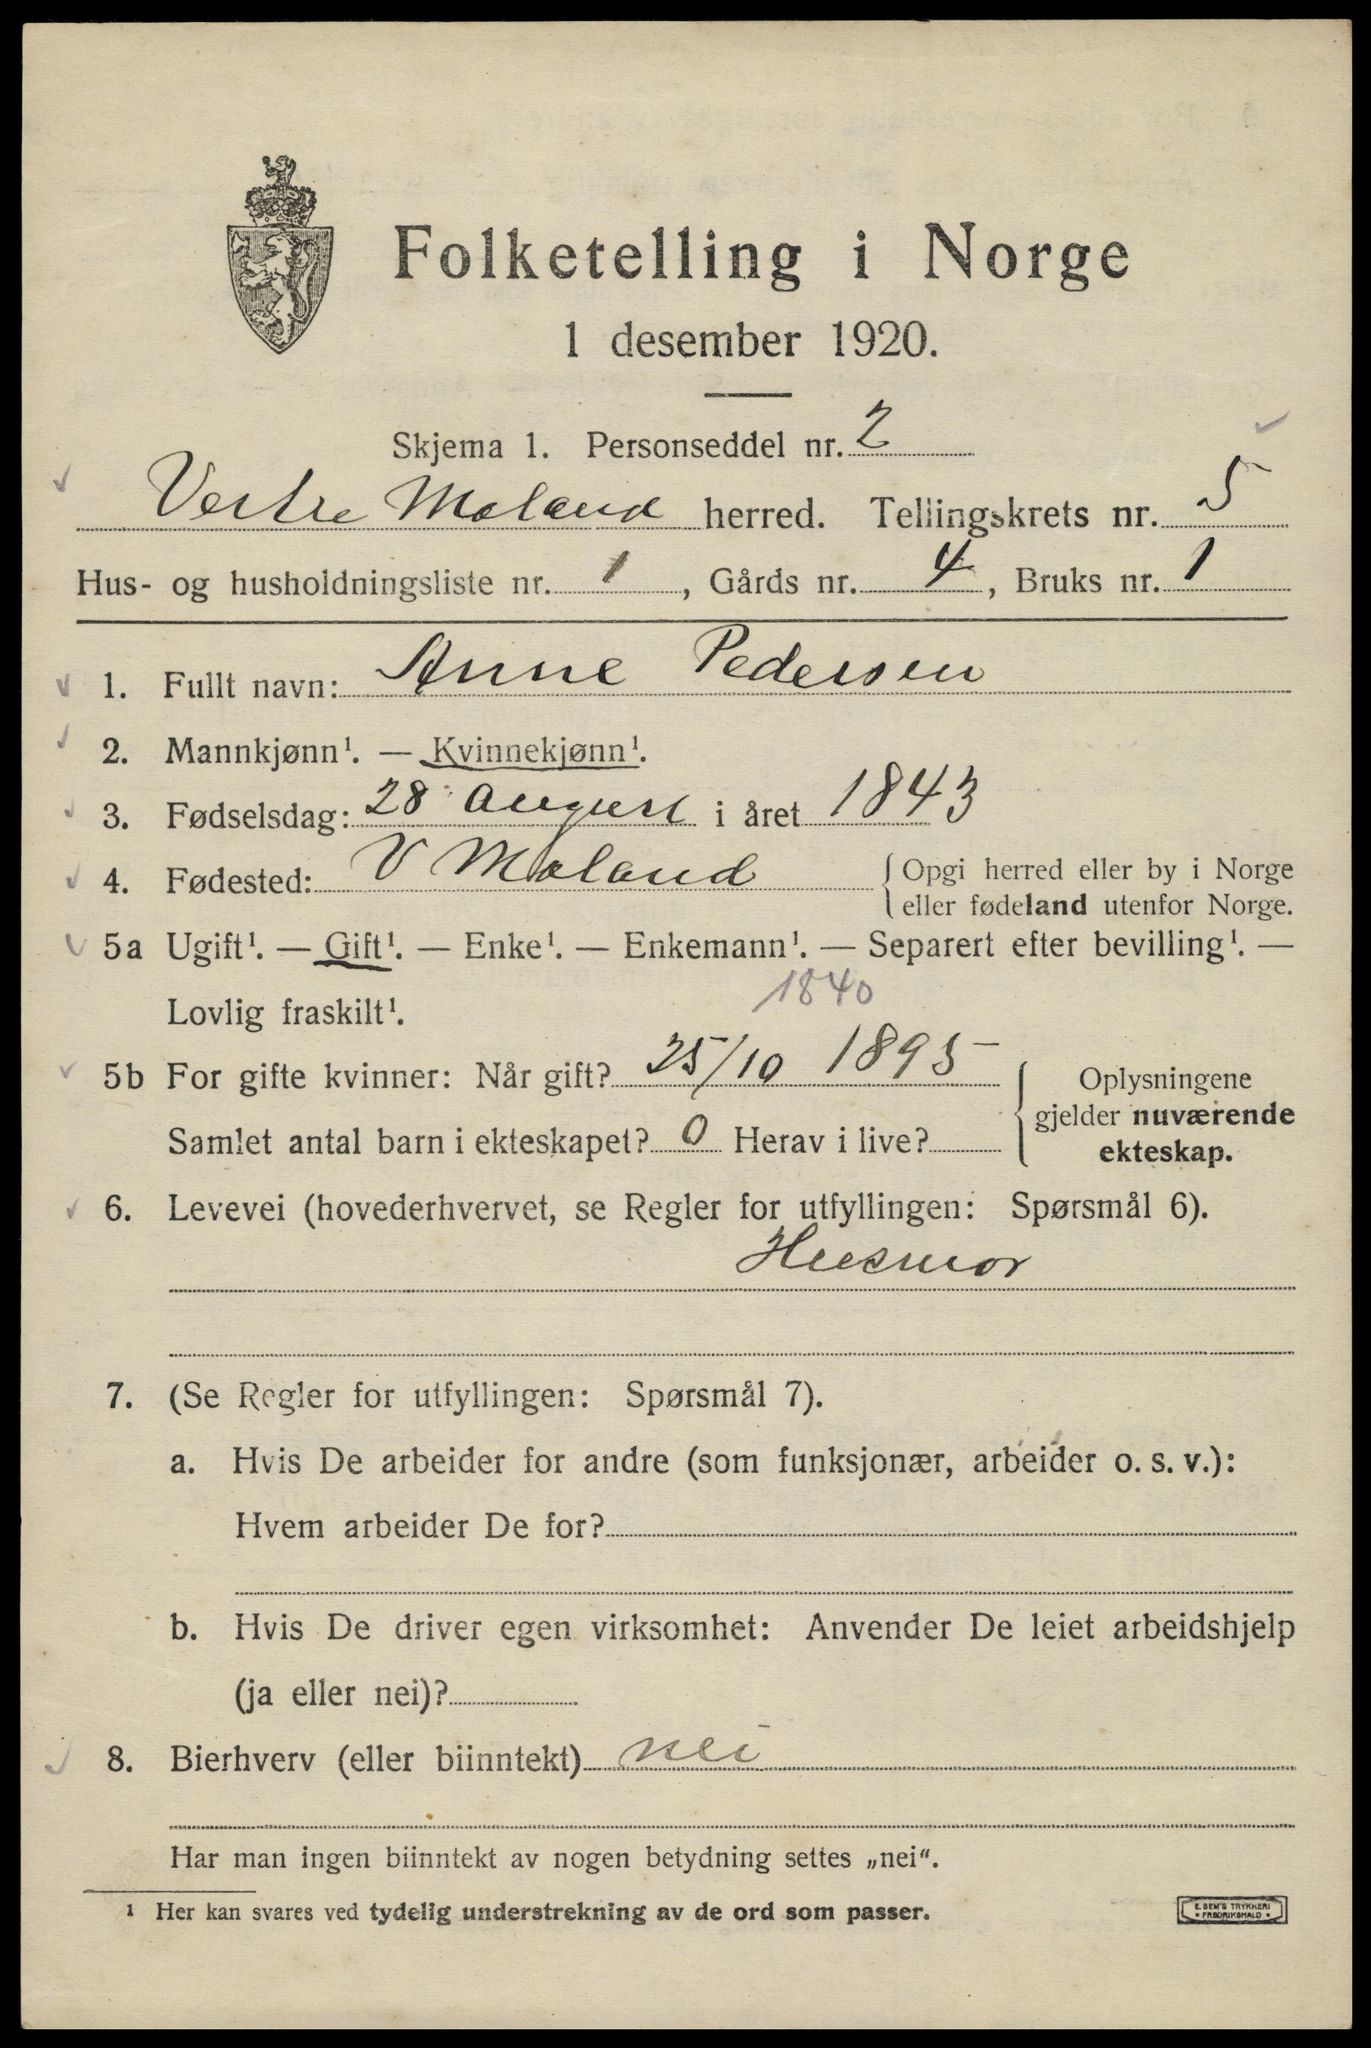 Folketelling i Norge
1 desember 1920.
Skjema 1. Personseddel nr. 2
Vestre Moland herred. Tellingskrets nr. 5
Hus- og husholdningsliste nr. 1, Gårds nr. 4, Bruks nr. 1
1. Fullt navn: Anne Pedersen
2. Mannkjønn¹. — Kvinnekjønn¹.
3. Fødselsdag: 28 august i året 1843
4. Fødested: V Moland {Opgi herred eller by i Norge
eller fødeland utenfor Norge.
5a Ugift¹. — Gift¹. — Enke¹. — Enkemann¹. — Separert efter bevilling¹. —
Lovlig fraskilt¹.
1840
5b For gifte kvinner: Når gift? 25/10 1895
Samlet antal barn i ekteskapet? 0 Herav i live?
Oplysningene
gjelder nuværende
ekteskap.
6. Levevei (hovederhvervet, se Regler for utfyllingen: Spørsmål 6).
Husmor
7. (Se Regler for utfyllingen: Spørsmål 7).
a. Hvis De arbeider for andre (som funksjonær, arbeider o. s. v.):
Hvem arbeider De for?
b. Hvis De driver egen virksomhet: Anvender De leiet arbeidshjelp
(ja eller nei)?
8. Bierhverv (eller biinntekt) nei
Har man ingen biinntekt av nogen betydning settes „nei“.
¹ Her kan svares ved tydelig understrekning av de ord som passer.
E. SEM'S TRYKKERI
• FREDRIKSHALD •